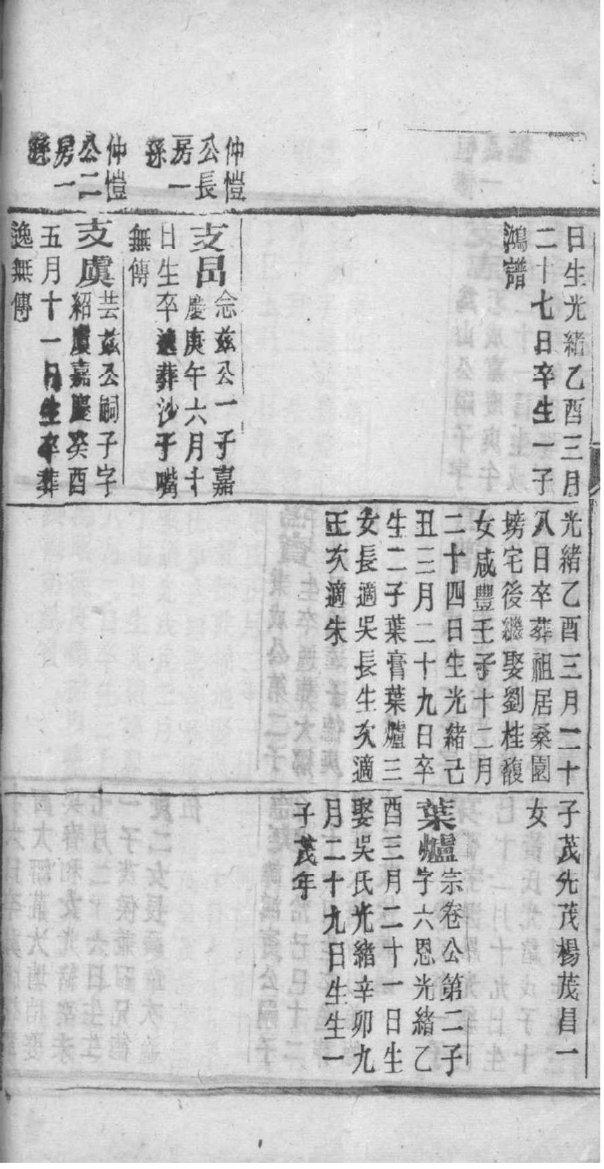 日生光緒乙酉三月
二十七日卒生一子
鴻譜
仲愷
公長
房一
孫
支昌念兹公一子嘉
慶庚午六月十
日生卒逸葬沙子嘴
無傳
仲愷
公二
房一
孫
支虞芸兹公嗣子字
紹慶嘉慶癸酉
五月十一日生卒葬
逸無傳
光緒乙酉三月二十
八日卒葬祖居桑園
塝宅後繼娶劉桂馥
女咸豐壬子十二月
二十四日生光緒己
丑三月二十九日卒
生二子葉膏葉爐三
女長適吳長生次適
王次適朱
子茂先茂楊茂昌一
女
葉爐宗卷公第二子
字六恩光緒乙
酉三月二十一日生
娶吳氏光緒辛卯九
月二十九日生生一
子茂年